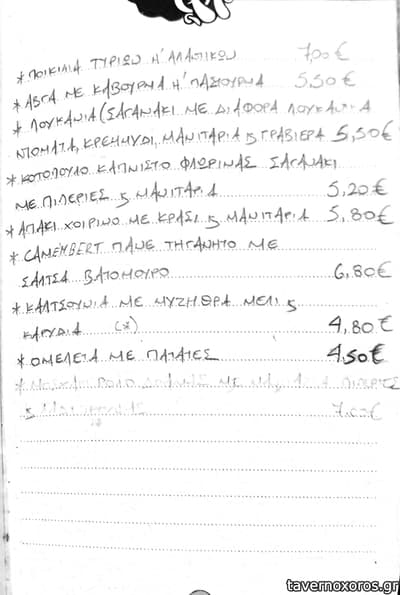 * ΠΟΙΚΙΛΙΑ ΤΥΡΙΩΝ Η' ΑΛΛΑΤΙΚΩΝ 7,00 €
* ΑΒΓΑ ΜΕ ΚΑΒΟΥΡΜΑ Η' ΠΑΣΤΟΥΡΜΑ 5,50 €
* ΛΟΥΚΑΝΙΑ (ΣΑΓΑΝΑΚΙ ΜΕ ΔΙΑΦΟΡΑ ΛΟΥΚΑΝΙΚΑ
ΝΤΟΜΑΤΑ, ΚΡΕΜΜΥΔΙ, ΜΑΝΙΤΑΡΙΑ ϗ ΓΡΑΒΙΕΡΑ 5,50 €
* ΚΟΤΟΠΟΥΛΟ ΚΑΠΝΙΣΤΟ ΦΛΩΡΙΝΑΣ ΣΑΓΑΝΑΚΙ
ΜΕ ΠΙΠΕΡΙΕΣ ϗ ΜΑΝΙΤΑΡΙΑ 5,20 €
* ΑΠΑΚΙ ΧΟΙΡΙΝΟ ΜΕ ΚΡΑΣΙ ϗ ΜΑΝΙΤΑΡΙΑ 5,80 €
* CAMEMBERT ΠΑΝΕ ΤΗΓΑΝΗΤΟ ΜΕ
ΣΑΛΤΣΑ ΒΑΤΟΜΟΥΡΟ 6,80 €
* ΚΑΛΤΣΟΥΝΙΑ ΜΕ ΜΥΖΗΘΡΑ ΜΕΛΙ ϗ
ΚΑΡΥΔΙΑ (*) 4,80 €
* ΟΜΕΛΕΤΑ ΜΕ ΠΑΤΑΤΕΣ 4,50 €
* ΡΟΛΟ ΜΕ ΠΙΠΕΡΙΕΣ
ϗ 7,00 €
tavernoxoros.gr